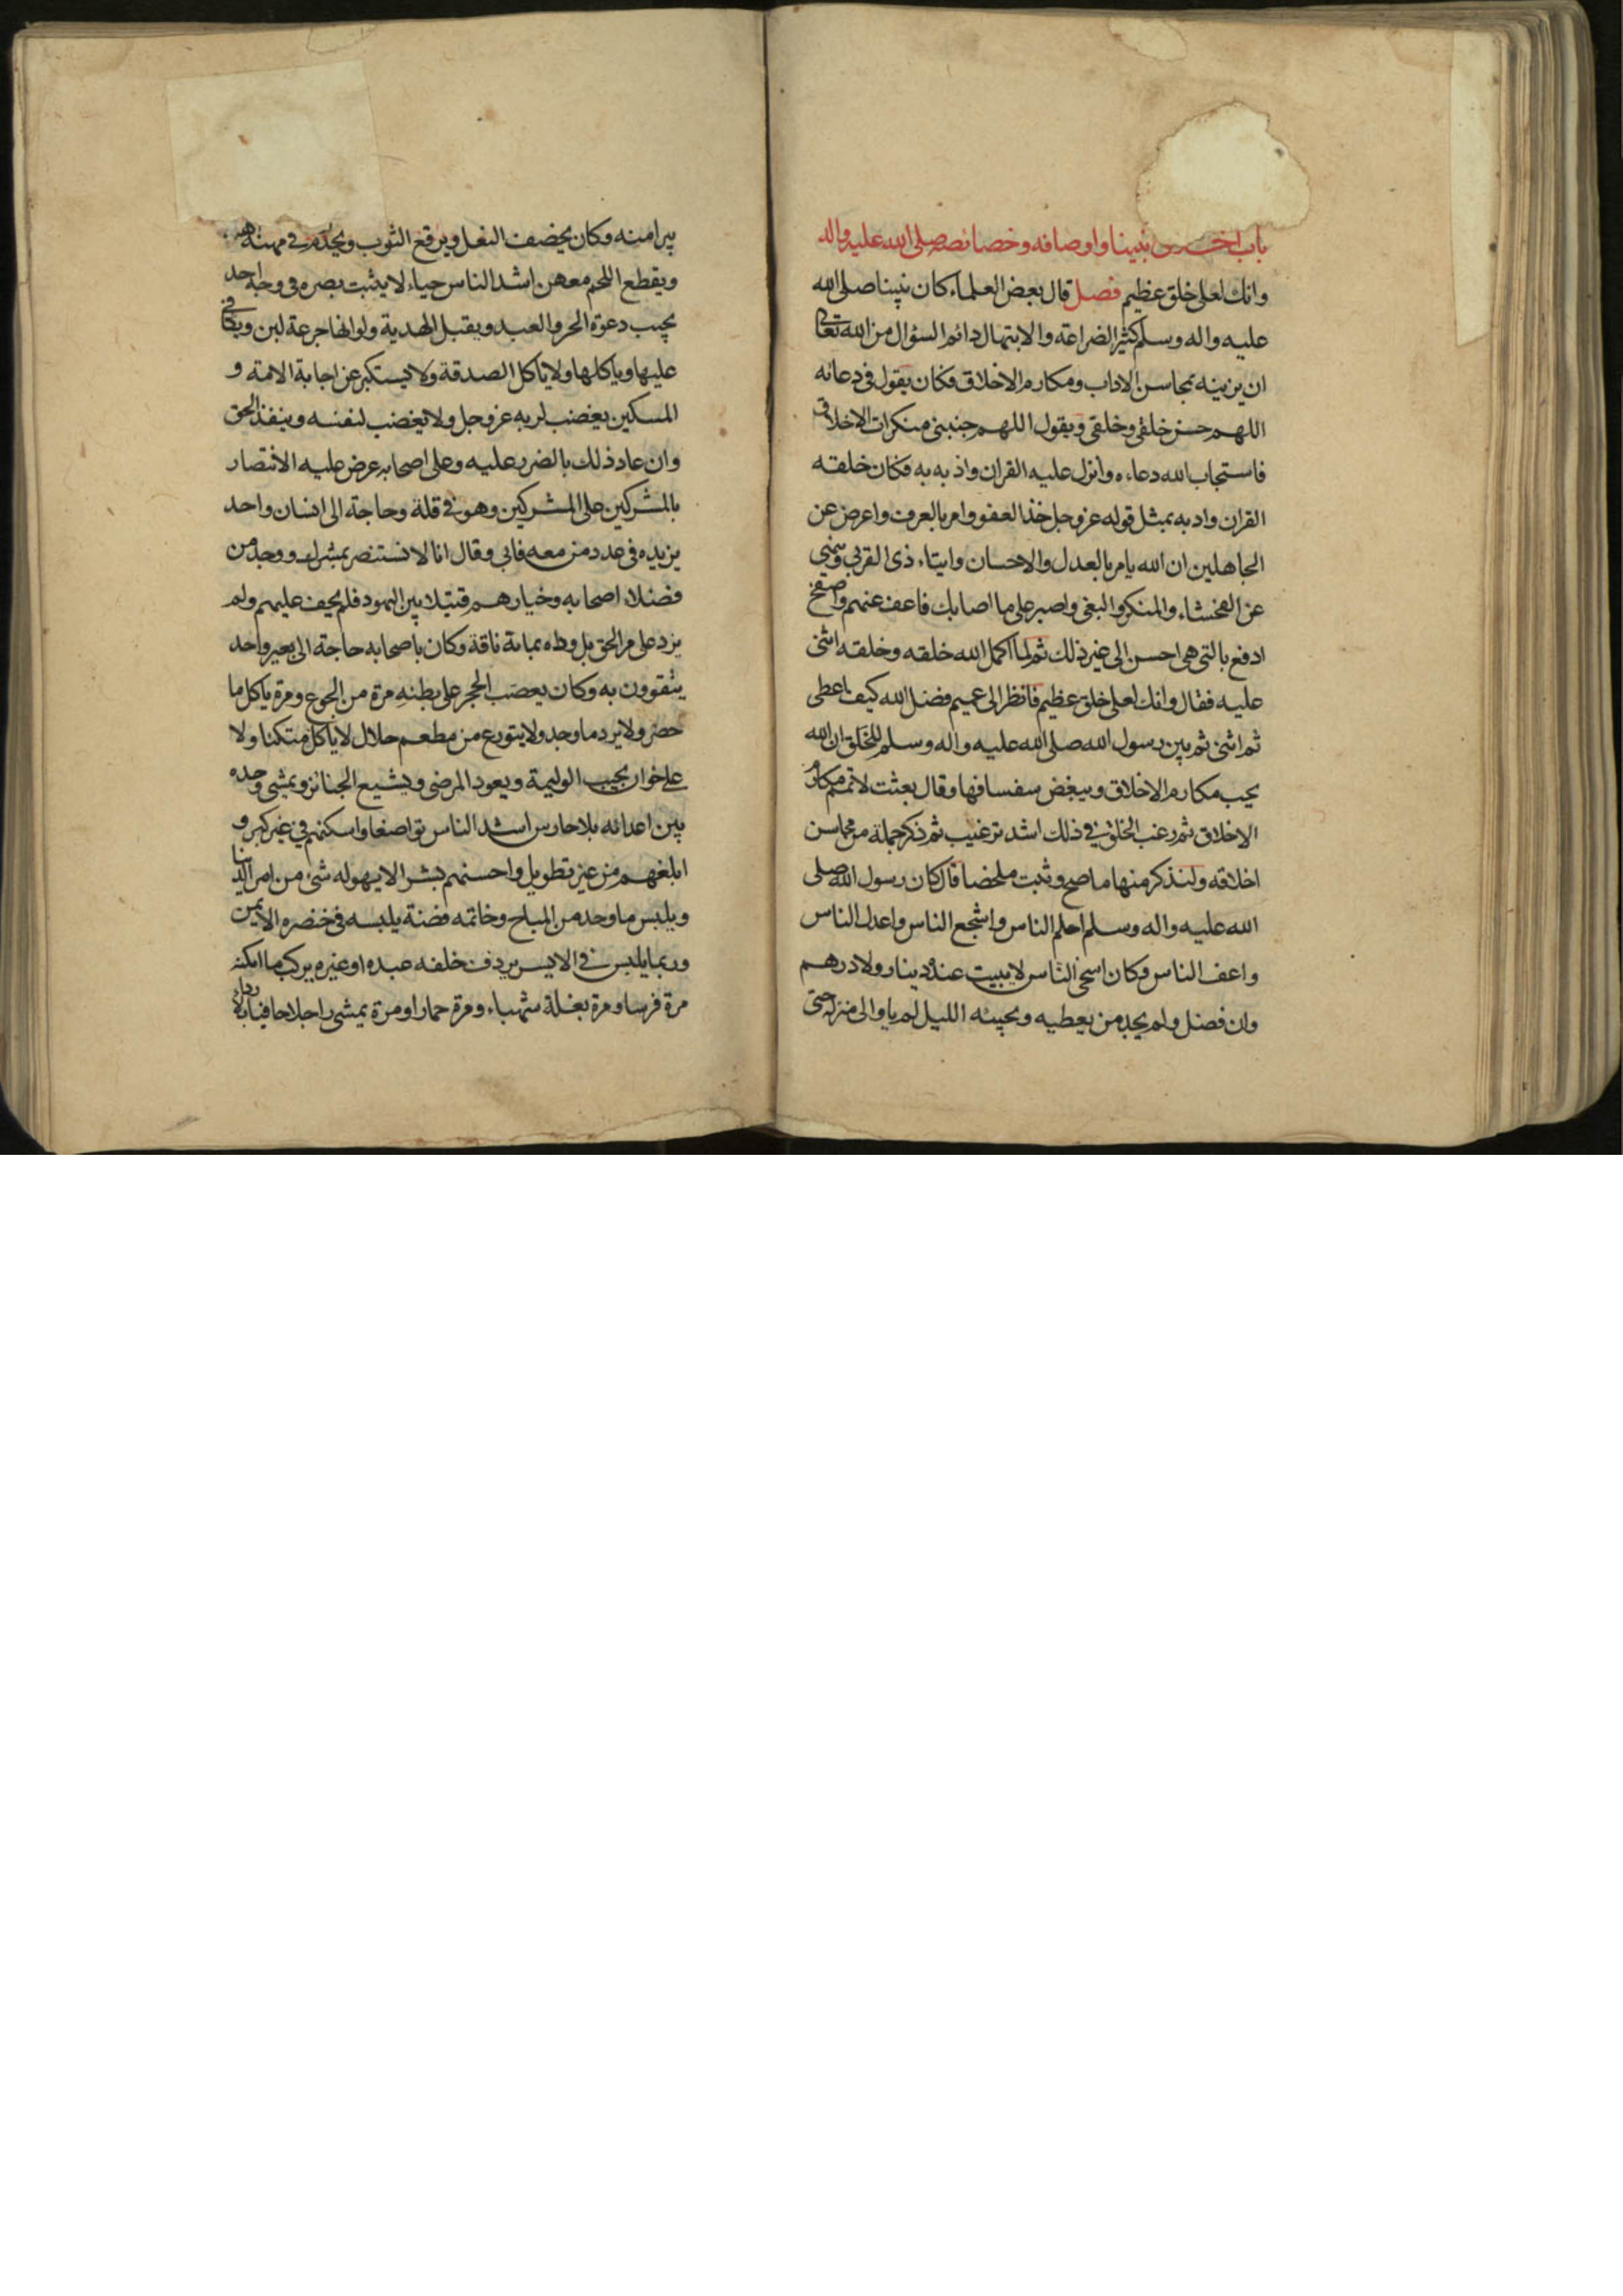 باب اخـ نبينا واوصافه وخصائصه صلى الله عليه واله
وانك لعلى خلق عظيم فصل قال بعض العلماء كان نبينا صلى الله
عليه واله وسلم كثير الضراعة والابتهال دائم السؤال من الله تعالى
ان يزينه بمحاسن الاداب ومكارم الاخلاق فكان يقول في دعائه
اللهم حسن خلقي وخلقي ويقول اللهم جنبني منكرات الاخلاق
فاستجاب الله دعاءه وانزل عليه القران واذبه به فكان خلقه
القران وادبه بمثل قوله عز وجل خذ العفو وامر بالعرف واعرض عن
الجاهلين ان الله يامر بالعدل والاحسان وايتاء ذى القربى وينهى
عن الفحشاء والمنكر والبغي واصبر على ما اصابك فاعف عنهم واصفح
ادفع بالتي هي احسن الى غير ذلك ثم لما اكمل الله خلقه وخلقه اثنى
عليه فقال وانك لعلى خلق عظيم فانظر الى عميم فضل الله كيف اعطى
ثم اثنى ثم بين رسول الله صلى الله عليه واله وسلم للخلق ان الله
يحب مكارم الاخلاق ويبغض سفسافها وقال بعثت لاتمم مكارم
الاخلاق ثم رغب الخلق في ذلك اشد ترغيب ثم ذكر جملة من محاسن
اخلاقه ولنذكر منها ما صح وثبت ملخصا قال كان رسول الله صلى
الله عليه واله وسلم احلم الناس واشجع الناس واعدل الناس
واعف الناس وكان اسخى الناس لا يبيت عنده دينار ولا درهم
وان فضل ولم يجد من يعطيه ويجيئه الليل لم ياو الى منزله حتى
يبرا منه وكان يخصف النعل ويرقع الثوب ويخدم في مهنة
ويقطع اللحم معهن اشد الناس حياء لا يثبت بصره في وجه احد
يجيب دعوة الحر والعبد ويقبل الهدية ولو انها جرعة لبن ويكافي
عليها وياكلها ولا ياكل الصدقة ولا يستكبر عن اجابة الامة و
المسكين يغضب لربه عز وجل ولا يغضب لنفسه وينفذ الحق
وان عاد ذلك بالضرر عليه وعلى اصحابه عرض عليه الانتصار
بالمشركين على المشركين وهو في قلة وحاجة الى انسان واحد
يزيده في عدد من معه فابى وقال انا لا نستنصر بمشرك ووجد من
فضلاء اصحابه وخيارهم قتيلا بين اليهود فلم يحف عليهم ولم
يزد على مر الحق بل وداه بمائة ناقة وكان باصحابه حاجة الى بعير واحد
يتقوون به وكان يعصب الحجر على بطنه مرة من الجوع ومرة ياكل ما
حضر ولا يرد ما وجد ولا يتورع من مطعم حلال لا ياكل متكئا ولا
على خوان يجيب الوليمة ويعود المرضى ويشيع الجنائز ويمشي وحده
بين اعدائه بلا حارس اشد الناس تواضعا واسكنهم في غير كبر و
ابلغهم من غير تطويل واحسنهم بشرا لا يهوله شيء من امر الدنيا
ويلبس ما وجد من المباح وخاتمه فضة يلبسه في خنصره الايمن
وربما يلبس في الايسر يردف خلفه عبده او غيره يركب ما امكنه
مرة فرسا ومرة بغلة شهباء ومرة حمارا ومرة يمشي راجلا حافيا بلا رداء